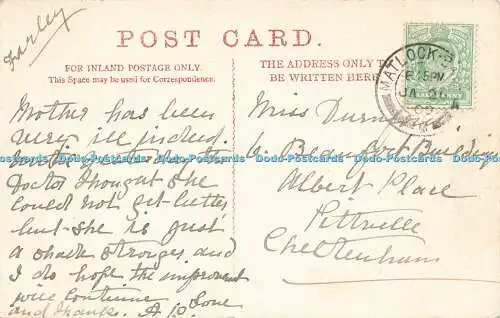 Farley
POST CARD.
FOR INLAND POSTAGE ONLY.
This Space may be used for Correspondence.
THE ADDRESS ONLY T
BE WRITTEN HERE
MATLOCK-B
6 15PM
JA 20
Mother has been
very ill indeed.
Doctor thought she
could not get better
but she is just
a shade stronger and
I do hope the improvement
will continue
and thanks. A
Miss
6. Beaufort Buildings
Albert Place
Pittville
Cheltenham
Dodo-Postcards Dodo-Postcards Dodo-Postcards Dodo-Postcards Dodo-Postcards Dodo-Postcards
Dodo-Postcards Dodo-Postcards Dodo-Postcards Dodo-Postcards Dodo-Postcards Dodo-Postcards